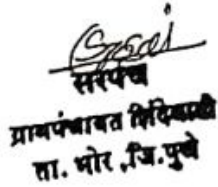 सरपंच
ग्रामपंचायत
ता. भोर, जि. पुणे